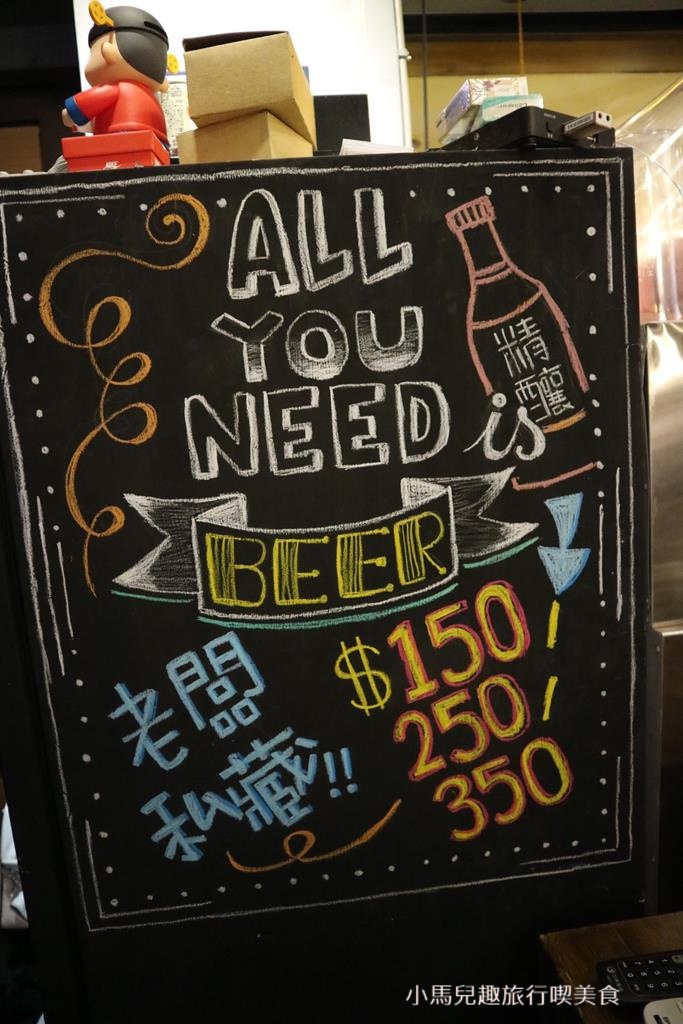 ALL
YOU
NEED is
精
釀
BEER
$150/
250/
350
老闆
私藏!!
小馬兒趣旅行喫美食